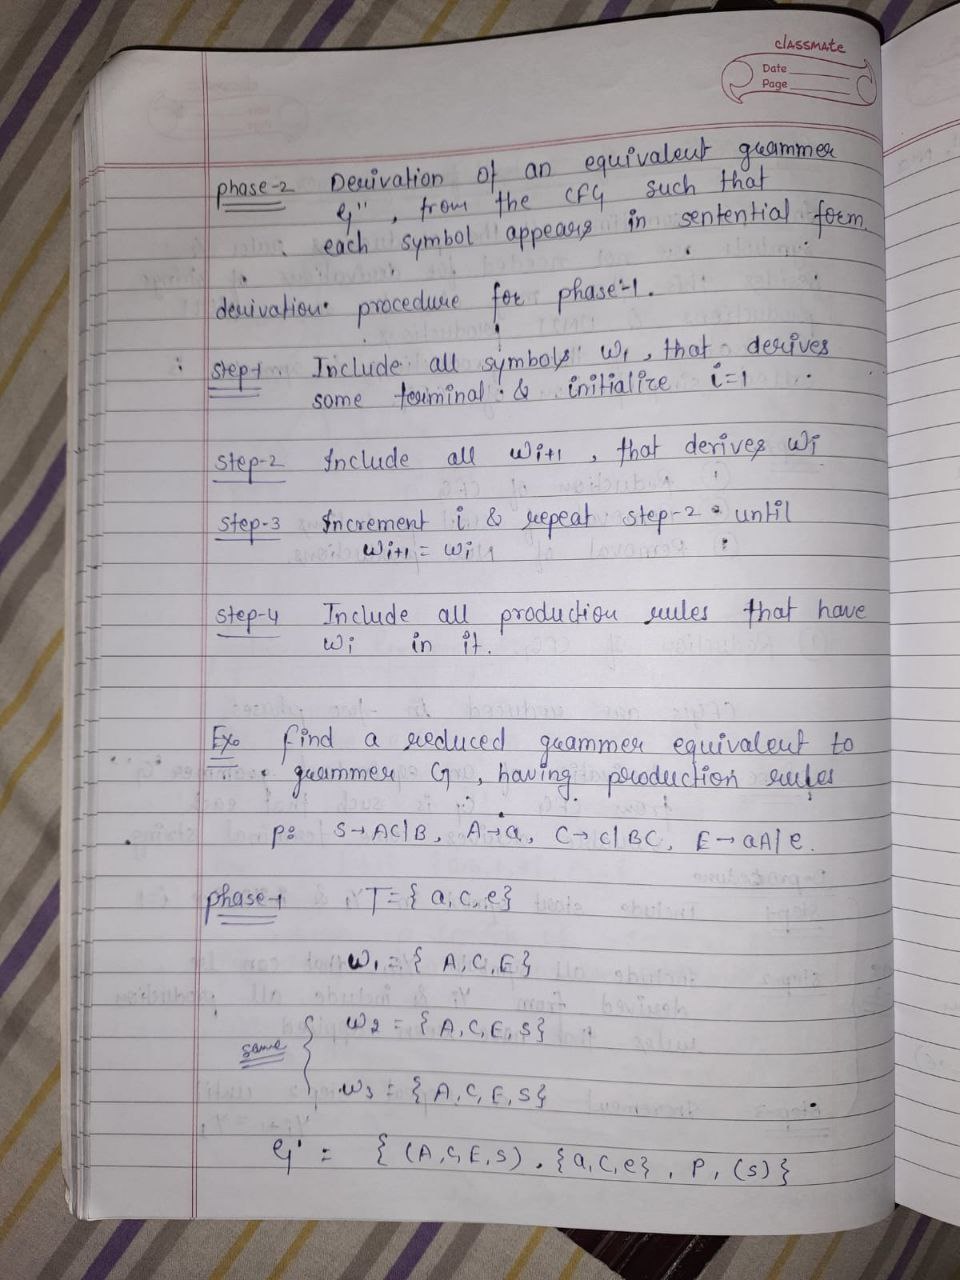 classmate
Date
Page
phase-2 Derivation of an equivalent grammer
G'', from the CFG such that
each symbol appears in sentential form.
derivation procedure for phase-1.
Step-1 Include all symbols w1, that derives
some terminal & initialize i=1
Step-2 Include all wi+1, that derives wi
Step-3 Increment i & repeat step-2 until
wi+1 = wi
Step-4 Include all production rules that have
wi in it.
Ex. find a reduced grammer equivalent to
grammer G, having production rules
P: S→AC|B, A→a, C→c|BC, E→aA|e.
phase-1 T={a,c,e}
w1={A,C,E}
w2={A,C,E,S}
same
w3={A,C,E,S}
G' = {(A,C,E,S), {a,c,e}, P, (S)}